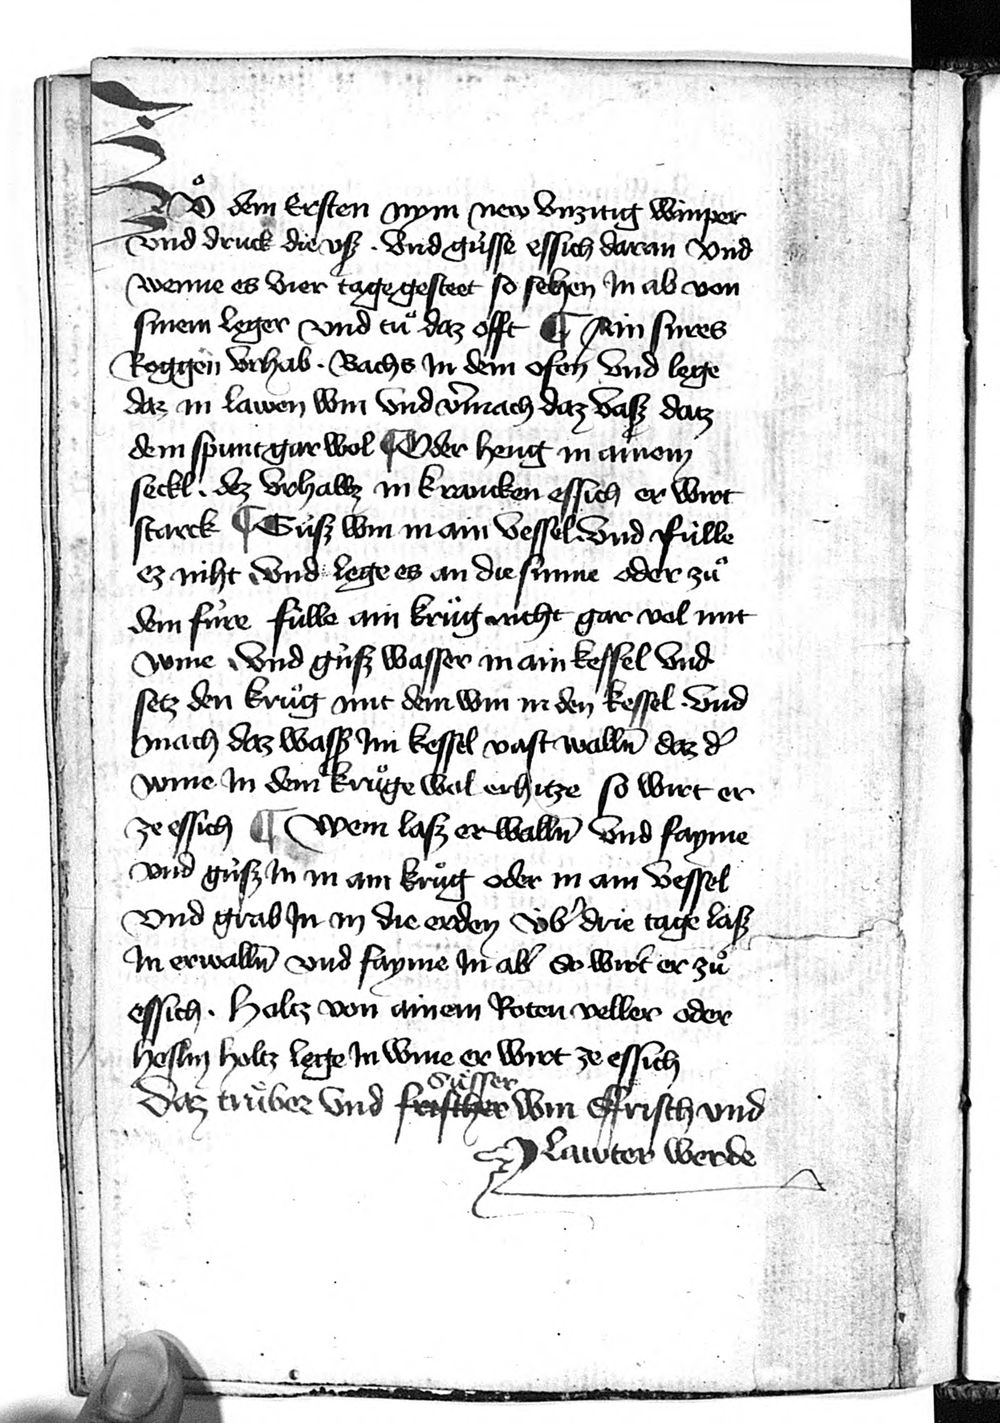 Zů dem Ersten nym new vnzitig winper
vnd druck die vß . vnd gusse essich daran vnd
wenne es vier tage gesteet so sehen In ab von
sinem leger vnd tů daz offt ¶ Ain sures
Roggen vrhab . Bachs In dem ofen vnd lege
daz in lawen win vnd v̄mach daz vasz datz
dem spunt gar wol ¶ Oder heng in ainem
seckl . dez vrhabz in krancken essich er wirt
starck ¶ Gusz win in ain vessel vnd fulle
ez niht vnd lege es an die sunne oder zů
dem fure fulle ain krůg nicht gar vol mit
wine . vnd gusz wasser in ain kessel vnd
setz den krůg mit dem win in den kessel . vnd
mach daz wass̄ im kessel vast walln̄ daz d̄
wine In dem krůge wal erhitze so wirt er
ze essich ¶ Wein lasz er walln̄ vnd fayme
vnd gusz In in ain krůg oder in ain vessel
vnd grab In in die erden vb̄ drie tage lasz
In erwalln̄ vnd fayme In ab̄ So wirt er zů
essich . Holtz von ainem Roten veller oder
heslin holtz lege In wine er wirt ze essich
Susser
Daz truber vnd frischer win Frisch vnd
lawter werde